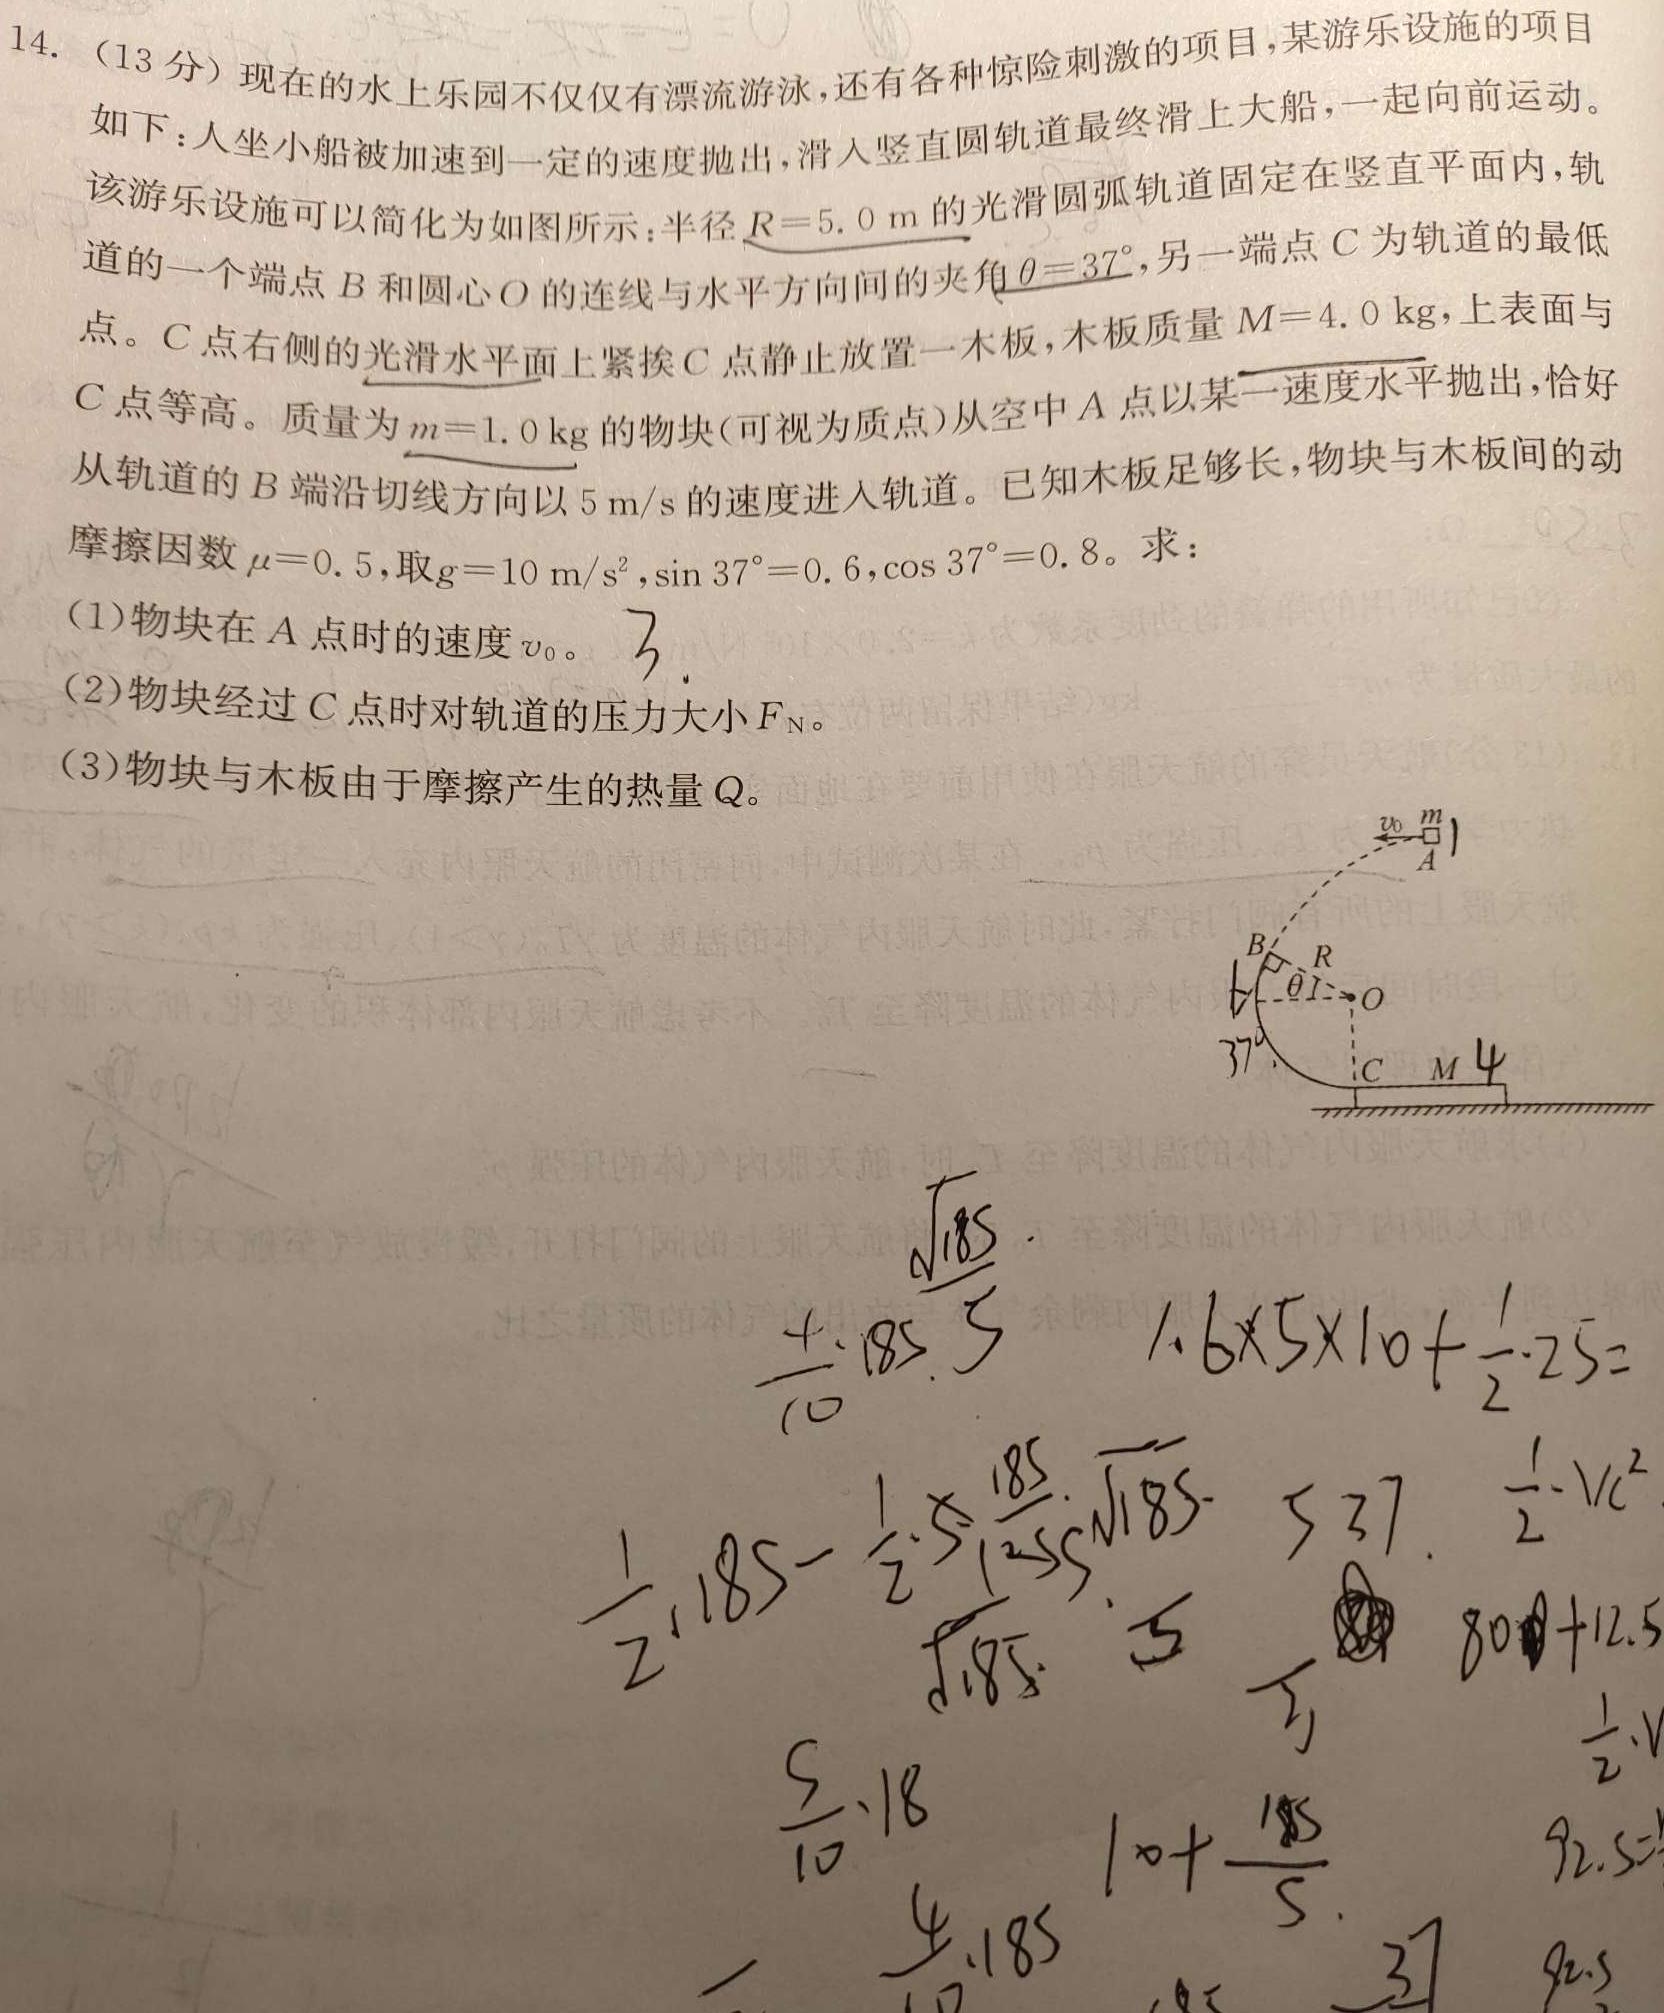 14. (13 分) 现在的水上乐园不仅仅有漂流游泳,还有各种惊险刺激的项目,某游乐设施的项目
如下:人坐小船被加速到一定的速度抛出,滑入竖直圆轨道最终滑上大船,一起向前运动。
该游乐设施可以简化为如图所示:半径 R=5.0 m 的光滑圆弧轨道固定在竖直平面内,轨
道的一个端点 B 和圆心 O 的连线与水平方向间的夹角 θ=37°,另一端点 C 为轨道的最低
点。C 点右侧的光滑水平面上紧挨 C 点静止放置一木板,木板质量 M=4.0 kg,上表面与
C 点等高。质量为 m=1.0 kg 的物块(可视为质点)从空中 A 点以某一速度水平抛出,恰好
从轨道的 B 端沿切线方向以 5 m/s 的速度进入轨道。已知木板足够长,物块与木板间的动
摩擦因数 μ=0.5,取g=10 m/s²,sin 37°=0.6,cos 37°=0.8。求:
(1)物块在 A 点时的速度 v₀。 3.
(2)物块经过 C 点时对轨道的压力大小 F_N。
(3)物块与木板由于摩擦产生的热量 Q。
v₀ m 1
A
B R
θ O
37°
C M 4
√185
5
1/10·185
1.6×5×10+1/2·25=
1/2·185-1/2·5·185/125
√185
537.
1/2·Vc²
√185
5
80+12.5
5/10·18
10+185/5
92.5=
4/10·185
37
92.5